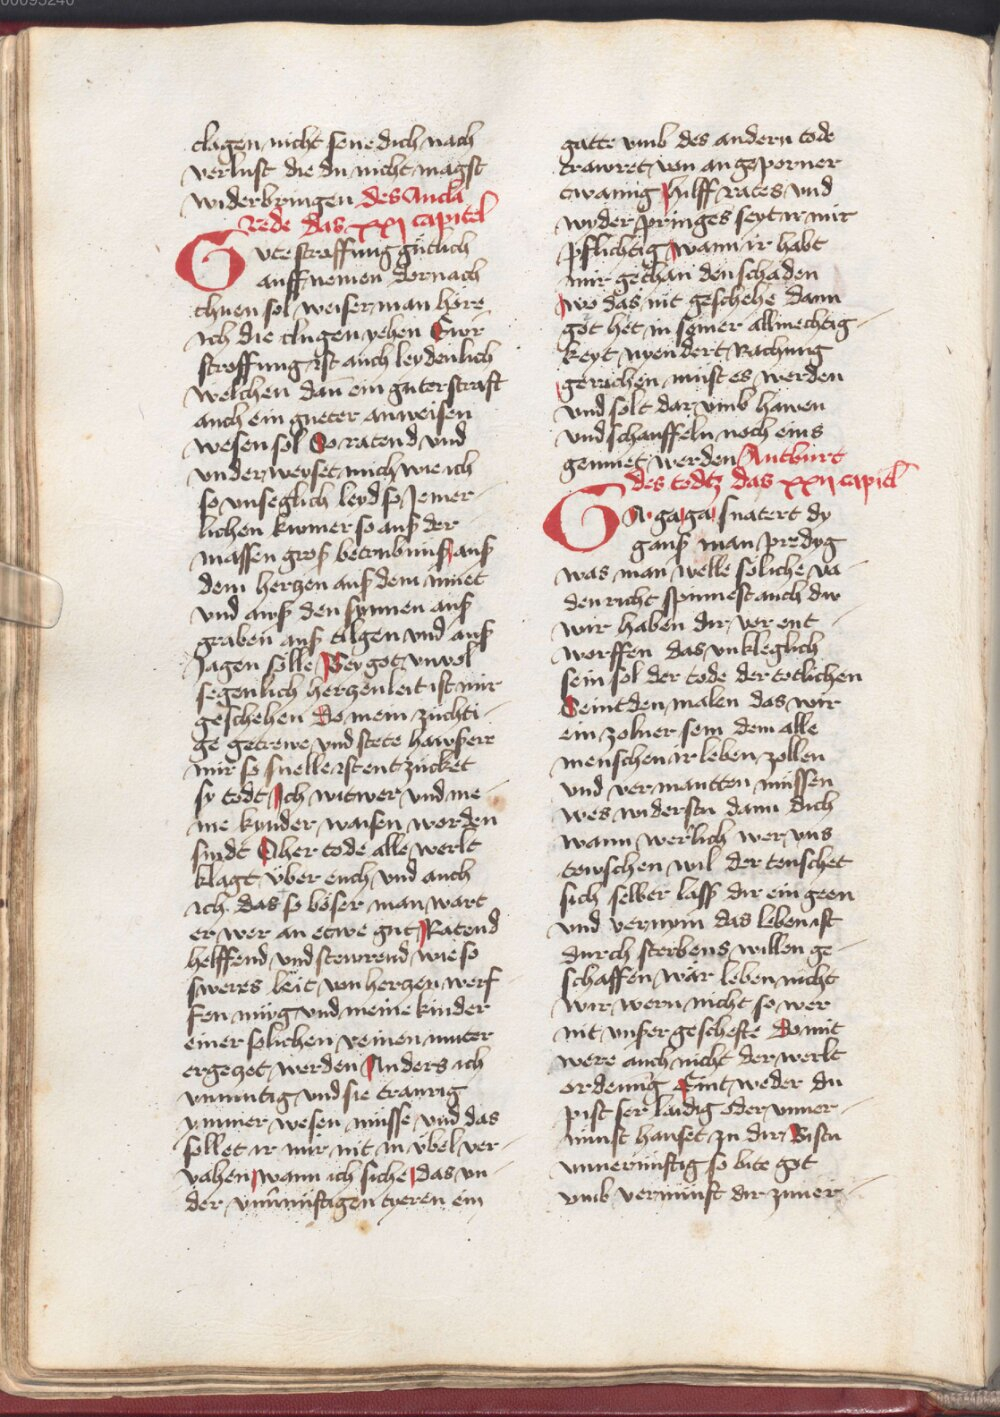 00095240
clagen nicht sene dich nach
verlust die du nicht magst
widerbringen des Ancla
rede das xxj capitel
Gute straffung gütlich
auff nemen dornach
thuen sol weiser man hore
ich die clugen yehen Ewr
straffung ist auch leydenlich
welchen dan̄ ein guter straft
auch ein gueter anweisen
wesen sol So ratend vnd
vnder weyset mich wie ich
so vnseglich leyd so Jemer
lichen kumer so auß der
massen groß betrubnuß auß
dem hertzen auß dem muet
vnd awß den synnen auß
graben auß tilgen vnd auß
Jagen sölle Bey got vnvol
segenlich hertzenleit ist mir
geschehen Do mein züchti
ge getrewe vnd stete hawßere
mir so snelle ist entzücket
sy todt Ich witwer vnd me
ine kynder waisen worden
sindt O her tode alle werlt
klagt über euch vnd auch
ich das so böser man wart
er wer an etwe gut Ratend
helffend vnd stewrend wie so
sweres leit von hertzen werf
fen müg vnd meine kinder
einer solichen reinen muter
ergetzet werden Anders ich
vnmutig vnd sie traurig
ymmer wesen müsse vnd das
sollet ir mir nit in übel ver
vahen wann ich siche das vn
der vnuernüftigen tyeren ein
gatte vmb des andern tode
trawret von an geporner
twanng hülff rates vnd
wyder pringes seyt ir mir
pflichtig wann ir habt
mir gethan den schaden
wo das nit geschehe dann
got het in seiner allmechtig
keyt nyendert Rachung
gerachen müst es werden
vnd solt dar vmb hawen
vnd schauffeln noch eins
gemüet werden Antburt
des todtz das xxij capitel
Ga ga ga snatert dy
ganß man predyg
was man welle soliche va
den richt spinnest auch dw
wir haben dir vor ent
worffen das vnkleglich
sein sol der tode der totlichen
Seint den malen das wir
ein zolner sein dem alle
menschen ir leben zollen
vnd vermautten müssen
wes widerstu dann dich
wann werlich wer vns
tewschen wil der teuschet
sich selber lass dir ein geen
vnd vernym das leben ist
durch sterbens willen ge
schaffen wär leben nicht
wir wern nicht so wer
nit vnser gescheffte Do mit
were auch nicht der werlt
ordenung Eintweder du
pist ser laidig oder vnuer
nunft hauset zu dir Bistu
vnuernüftig so bite got
vmb vernunft dir zuuer